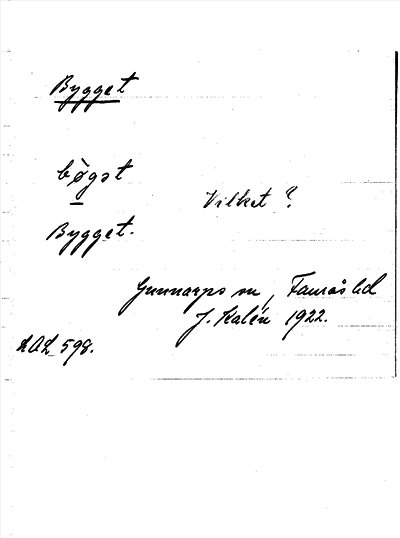 Bygget
bògət
Vilket?
Bygget.
Gunnarps sn, Faurås hd
J. Kalén 1922.
LAL 598.